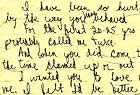 I have been so hurt
by the way you behaved
For the first 20-25 yrs
probably called me twice
And when you did come to
the time stoned up or out
I wanted you to love
me, I felt I'd be better